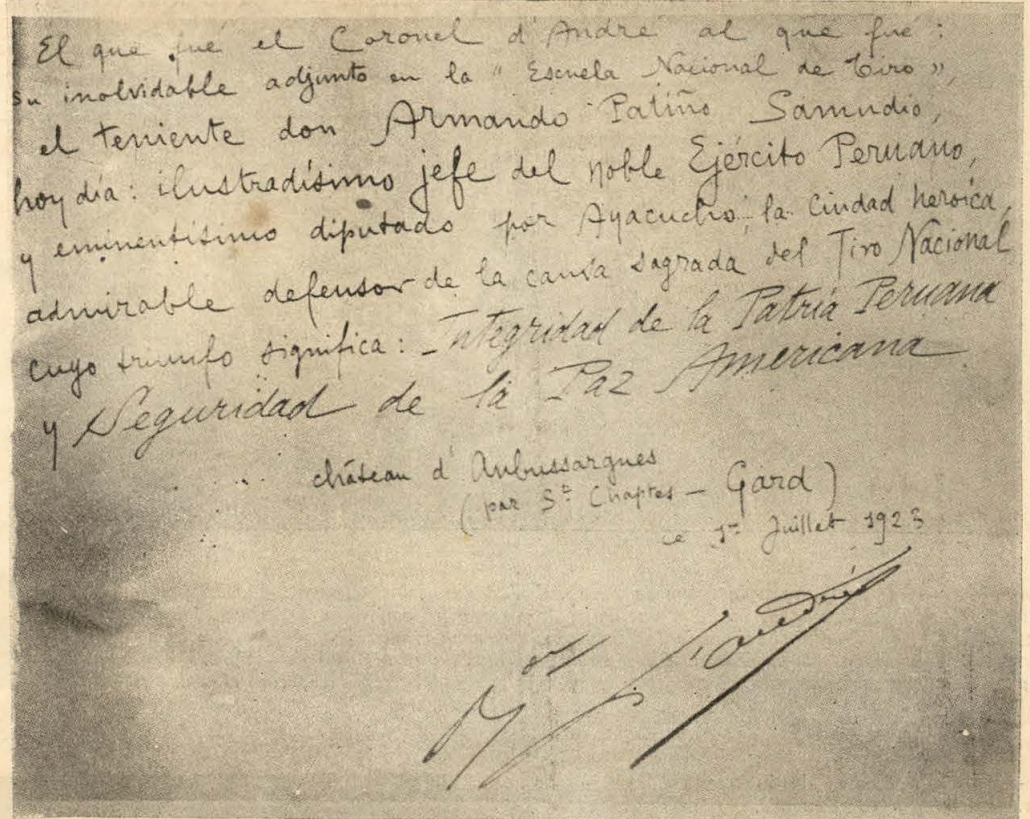 El que fué el Coronel d'André al que fué :
su inolvidable adjunto en la "Escuela Nacional de Tiro",
el teniente don Armando Patiño Samudio,
hoy día : ilustradísimo jefe del noble Ejército Peruano,
y eminentísimo diputado por Ayacucho, la Ciudad heroica,
admirable defensor de la causa sagrada del Tiro Nacional
cuyo triunfo significa : - Integridad de la Patria Peruana
y Seguridad de la Paz Americana
château d'Aubussargues
(par St Chaptes - Gard)
ce 1er Juillet 1923
d'André